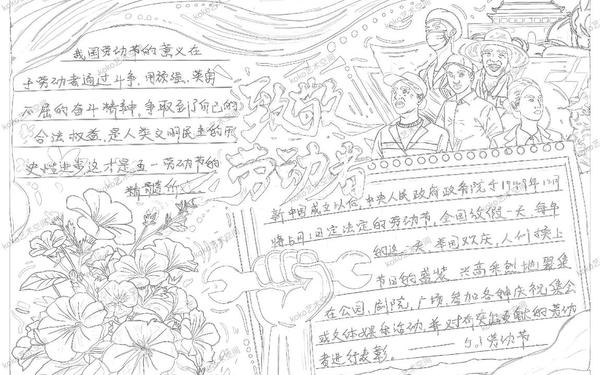 我国劳动节的意义在
于劳动者通过斗争,用顽强、英勇
不屈的奋斗精神,争取到了自己的
合法权益,是人类文明民主的历
史性进步这才是五一劳动节的
精髓所
致敬
劳动者
新中国成立以后,中央人民政府政务院于1949年12月
将5月1日定法定的劳动节,全国放假一天。每年
的这一天,举国欢庆,人们换上
节日的盛装,兴高采烈地聚集
在公园、剧院、广场,参加各种庆祝集会
或文体娱乐活动,并对有突出贡献的劳动
者进行表彰。
5.1劳动节